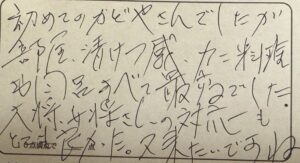 初めてのかどやさんでしたが
部屋、清けつ感、カニ料理
お風呂すべて最高でした。
大将、女将さんの対応も
とても良かった。又来たいですね